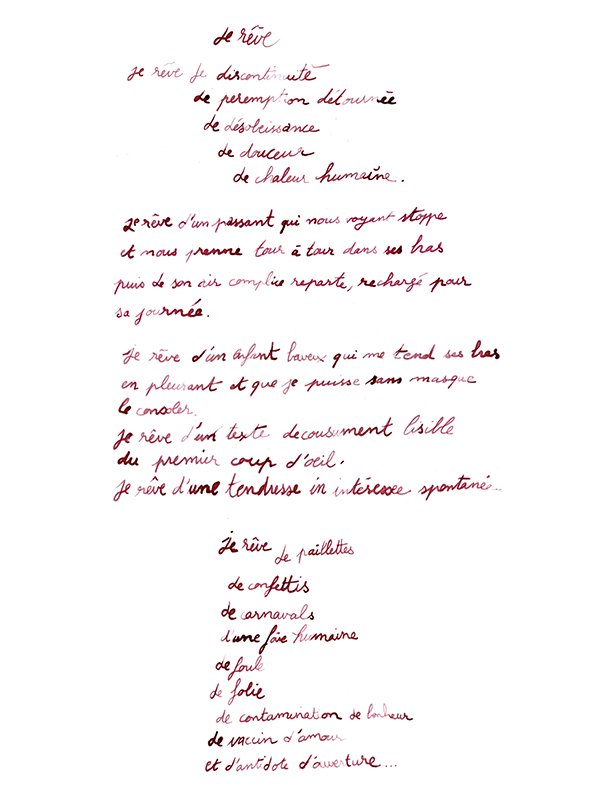 Je rêve
Je rêve de discontinuité
de peremption détournée
de désobeissance
de douceur
de chaleur humaine.
Je rêve d'un passant qui nous voyant stoppe
et nous prenne tour à tour dans ses bras
puis de son air complice reparte, rechargé pour
sa journée.
Je rêve d'un enfant baveux qui me tend ses bras
en pleurant et que je puisse sans masque
le consoler.
Je rêve d'un texte decousument lisible
du premier coup d'oeil.
Je rêve d'une tendresse in intéressée spontanée...
Je rêve de paillettes
de confettis
de carnavals
d'une joie humaine
de foule
de folie
de contamination de bonheur
de vaccin d'amour
et d'antidote d'ouverture...